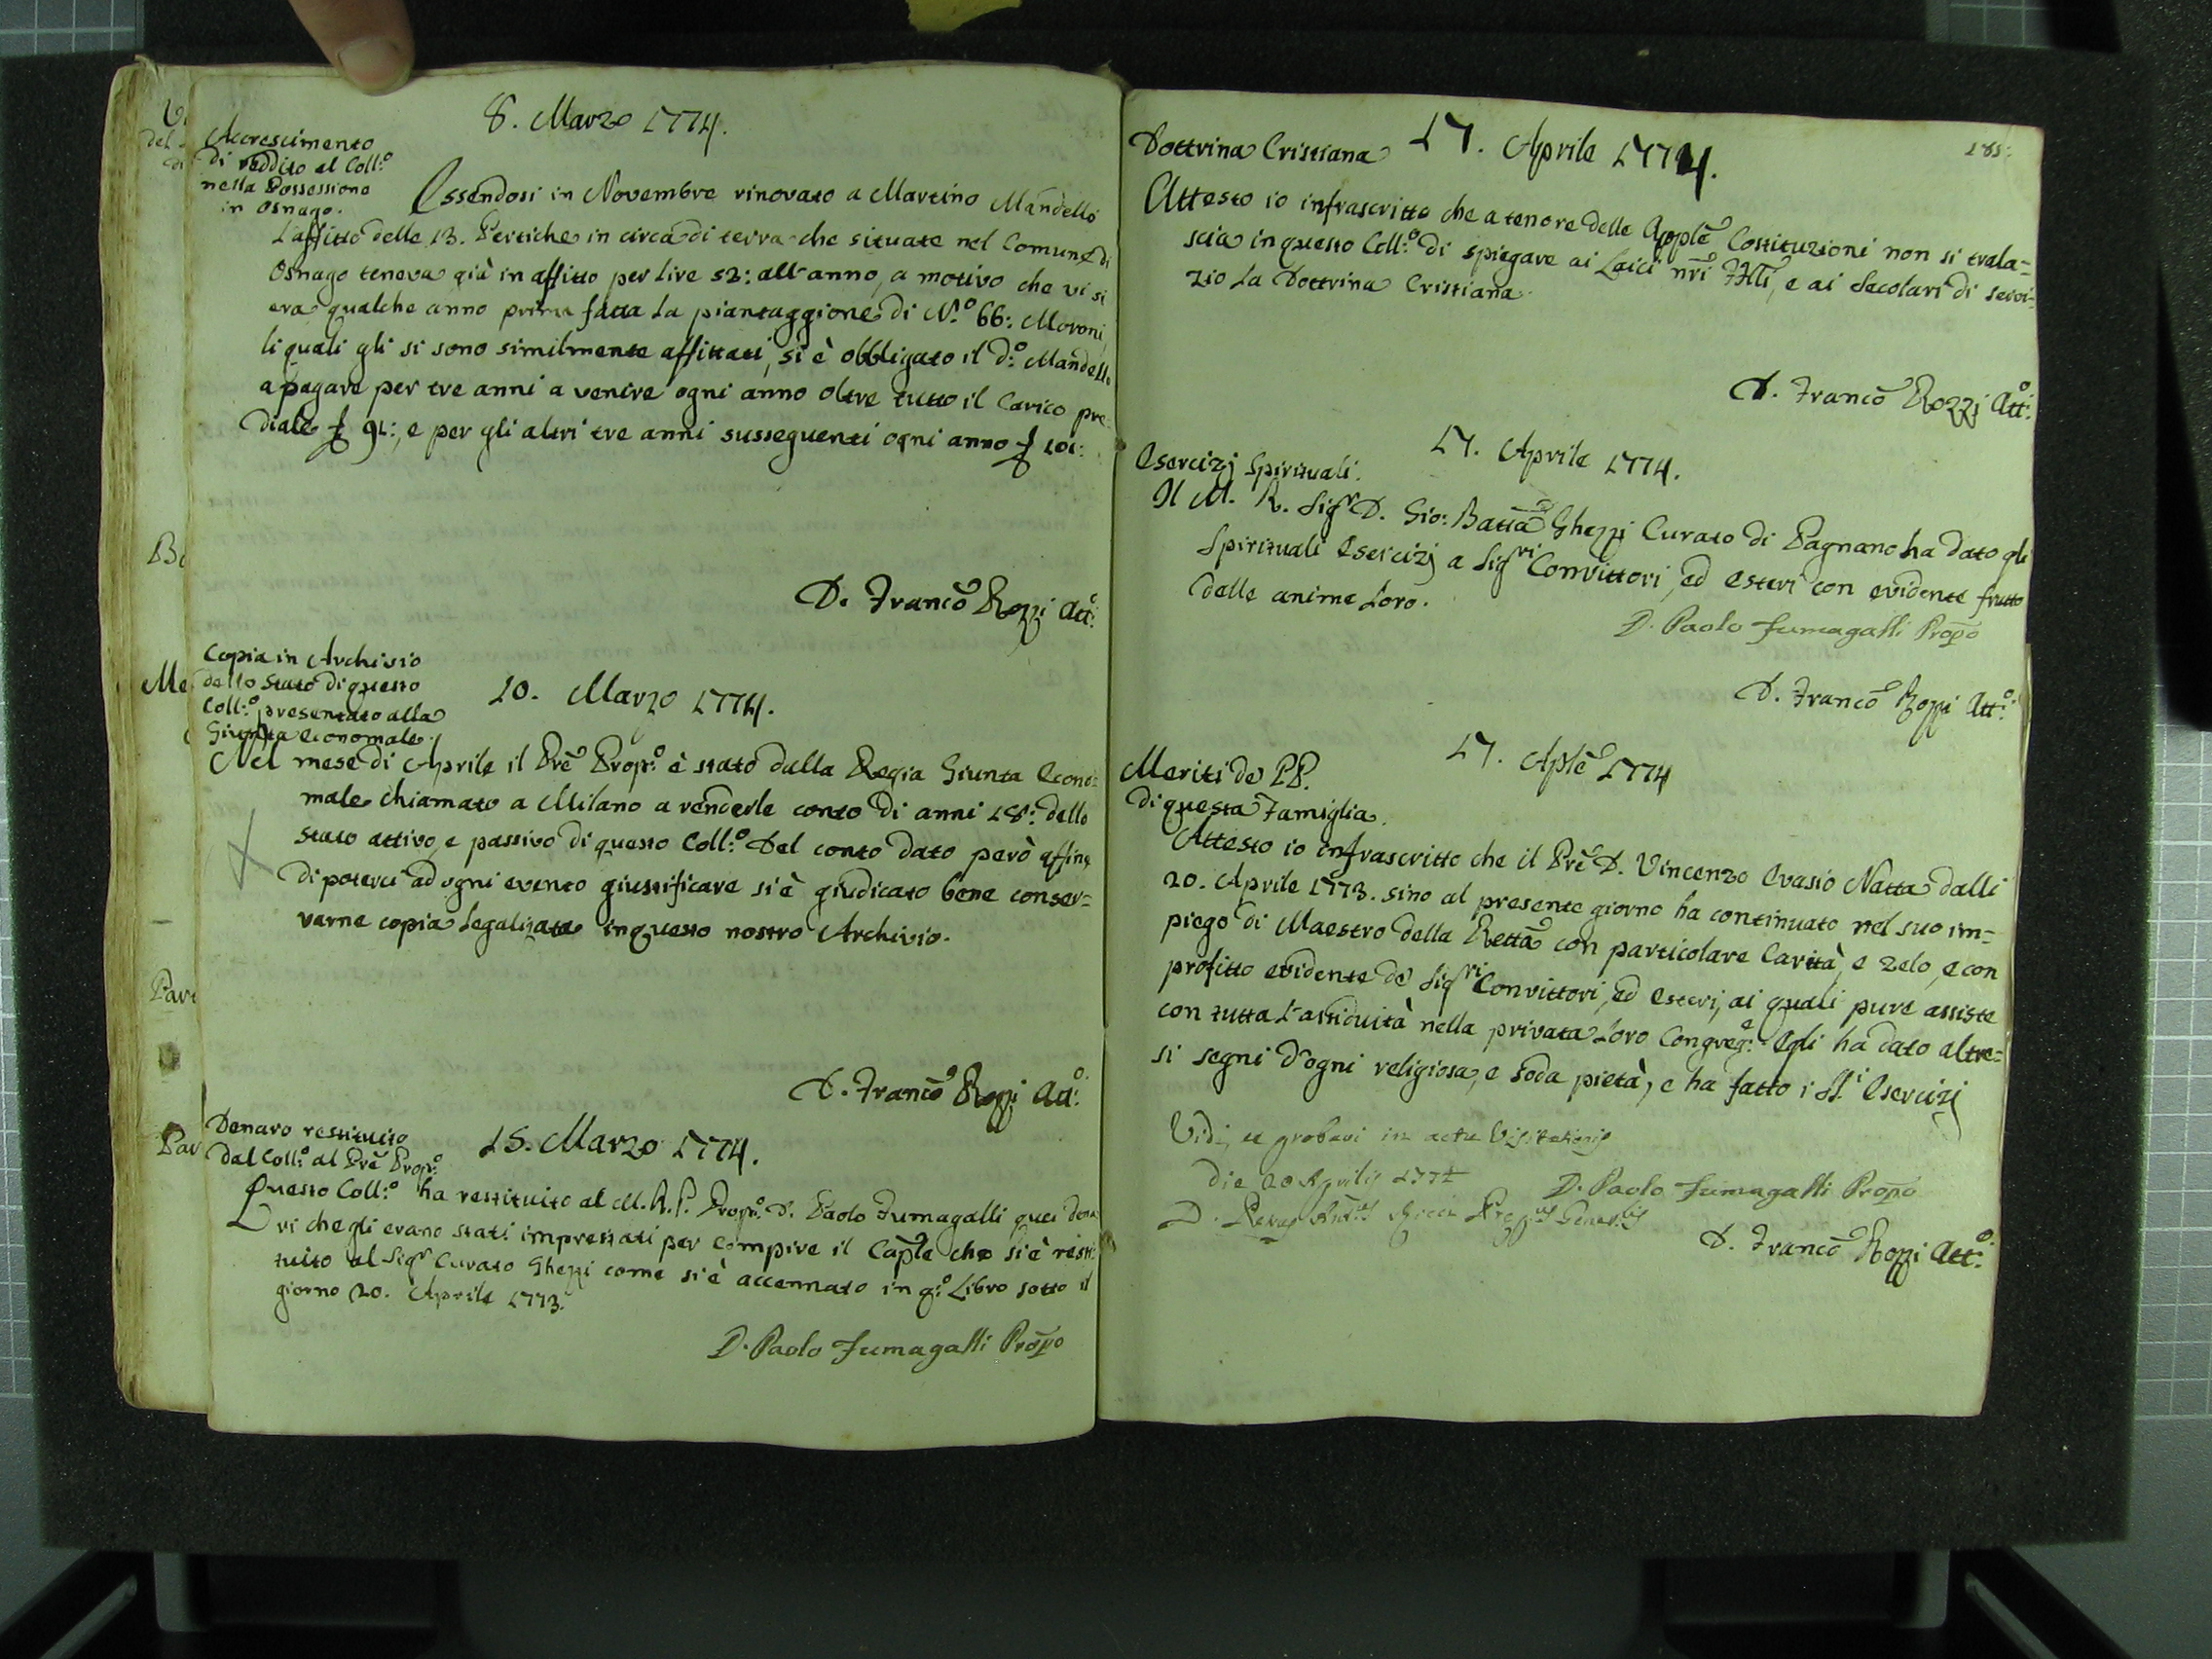 8. Marzo 1774.
Accrescimento
di reddito al Coll:o
nella Possessione
in Osnago.
Essendosi in Novembre rinovato a Martino Mandello
l'affitto delle 13. Pertiche in circa di terra che situate nel Comune di
Osnago teneva già in affitto per lire 52: all'anno, a motivo che vi si
era qualche anno prima fatta la piantaggione di N.o 66: Moroni,
li quali gli si sono similmente affittati, si è obbligato il d:o Mandello
a pagare per tre anni a venire ogni anno oltre tutto il Carico pre-
diale £ 91:, e per gli altri tre anni susseguenti ogni anno £ 101:
D. Franco Rozzi Att:o
Copia in Archivio
dello Stato di questo
Coll:o presentato alla
Giunta economale.
10. Marzo 1774.
Nel mese di Aprile il Pre Prop:o è stato dalla Regia Giunta Econo=
male chiamato a Milano a renderle conto di anni 18: dello
stato attivo, e passivo di questo Coll:o Del conto dato però affine
di poterci ad ogni evento giustificare si è giudicato bene conser=
varne copia legalizata in questo nostro Archivio.
D. Franco Rozzi Att:o
Denaro restituito
dal Coll:o al Pre Prop:o
15. Marzo 1774.
Questo Coll:o ha restituito al M. R. P. Prop:o D. Paolo Fumagalli quei dena
ri che gli erano stati imprestati per compire il Caple che si è resti
tuito al Sigr Curato Ghezzi come si è accennato in q:o Libro sotto il
giorno 20. Aprile 1773.
D. Paolo Fumagalli Propo
185:
Dottrina Cristiana
17. Aprile 1774.
Attesto io infrascritto che a tenore delle Apple Costituzioni non si trala=
scia in questo Coll:o di spiegare ai Laici nri Flli, e ai Secolari di servi=
zio la Dottrina Cristiana.
D. Franco Rozzi Att:o
17. Aprile 1774.
Esercizj Spirituali.
Il M. R. Sigr D. Gio: Batta Ghezzi Curato di Pagnano ha dato gli
Spirituali Esercizj a Sigri Convittori, ed esteri con evidente frutto
delle anime loro.
D. Paolo Fumagalli Propo
D. Franco Rozzi Att:o
17. Aple 1774
Meriti de PP.
di questa Famiglia.
Attesto io infrascritto che il Pre D. Vincenzo Evasio Natta dalli
20. Aprile 1773. sino al presente giorno ha continuato nel suo im=
piego di Maestro della Retta con particolare Carità, e zelo, e con
profitto evidente de Sigri Convittori, ed esteri, ai quali pure assiste
con tutta l'assiduità nella privata loro Congreg:e Egli ha dato altre=
si segni d'ogni religiosa, e soda pietà, e ha fatto i SS.i Esercizj
Vidi, et probavi in actu Visitationis
die 20 Aprilis 1774
D. Paolo Fumagalli Propo
D. Franco Rozzi Att:o